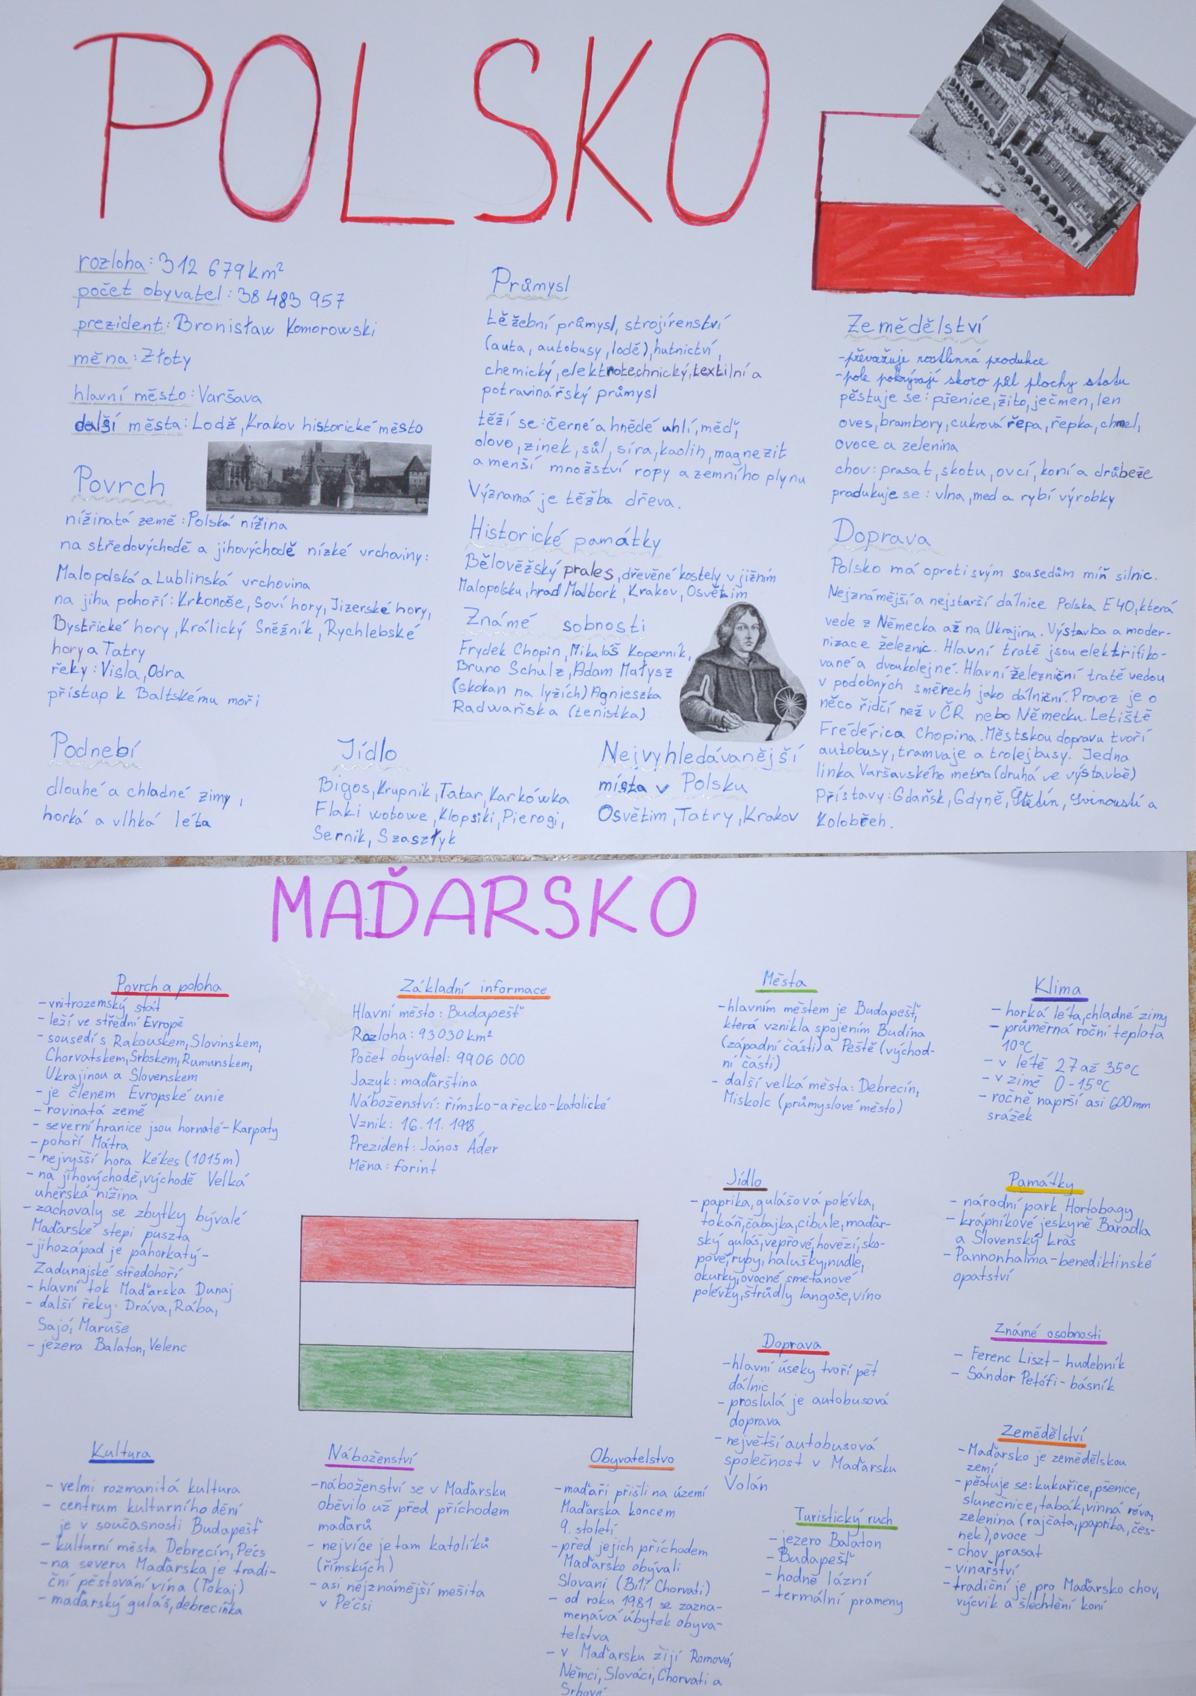 POLSKO
rozloha: 312 679 km²
počet obyvatel: 38 483 957
prezident: Bronisław Komorowski
měna: Złoty
hlavní město: Varšava
další města: Lodž, Krakov historické město
Povrch
nížinatá země: Polská nížina
na středovýchodě a jihovýchodě nízké vrchoviny:
Malopolská a Lublinská vrchovina
na jihu pohoří: Krkonoše, Soví hory, Jizerské hory,
Bystřické hory, Králický Sněžník, Rychlebské
hory a Tatry
řeky: Visla, Odra
přístup k Baltskému moři
Podnebí
dlouhé a chladné zimy,
horká a vlhká léta
Průmysl
těžební průmysl, strojírenství
(auta, autobusy, lodě), hutnictví,
chemický, elektrotechnický, textilní a
potravinářský průmysl
těží se: černé a hnědé uhlí, měď,
olovo, zinek, sůl, síra, kaolin, magnezit
a menší množství ropy a zemního plynu
Výz­namá je těžba dřeva.
Historické památky
Bělověžský prales, dřevěné kostely v jižním
Malopolsku, hrad Malbork, Krakov, Osvětim
Známé sobnosti
Frydek Chopin, Mikuláš Koperník,
Bruno Schulz, Adam Małysz
(skokan na lyžích) Agnieszka
Radwańska (tenistka)
Jídlo
Bigos, Krupnik, Tatar, Karkówka
Flaki wołowe, Klopsiki, Pierogi,
Sernik, Szaszłyk
Nejvyhledávanější
místa v Polsku
Osvětim, Tatry, Krakov
Zemědělství
-převažuje rostlinná produkce
-pole pokrývají skoro půl plochy státu
pěstuje se: pšenice, žito, ječmen, len
oves, brambory, cukrová řepa, řepka, chmel,
ovoce a zelenina
chov: prasat, skotu, ovcí, koní a drůbeže
produkuje se: vlna, med a rybí výrobky
Doprava
Polsko má oproti svým sousedům míň silnic.
Nejznámější a nejstarší dálnice Polska E40, která
vede z Německa až na Ukrajinu. Výstavba a moder-
nizace železnic. Hlavní tratě jsou elektrifiko-
vané a dvoukolejné. Hlavní železniční tratě vedou
v podobných směrech jako dálniční. Provoz je o
něco řidčí než v ČR nebo Německu. Letiště
Fréderica Chopina. Městskou dopravu tvoří
autobusy, tramvaje a trolejbusy. Jedna
linka Varšavského metra (druhá ve výstavbě)
Přístavy: Gdaňsk, Gdyně, Štětín, a
Kolobřeh.
MAĎARSKO
Povrch a poloha
- vnitrozemský stát
- leží ve střední Evropě
- sousedí s Rakouskem, Slovinskem,
Chorvatskem, Srbskem, Rumunskem,
Ukrajinou a Slovenskem
- je členem Evropské unie
- rovinatá země
- severní hranice jsou hornaté - Karpaty
- pohoří Mátra
- nejvyšší hora Kékes (1015m)
- na jihovýchodě, východě Velká
uherská nížina
- zachovaly se zbytky bývalé
Maďarské stepi puszta
- jihozápad je pahorkatý -
Zadunajské středohoří
- hlavní tok Maďarska Dunaj
- další řeky: Dráva, Rába,
Sajó, Maruše
- jezera Balaton, Velenc
Základní informace
Hlavní město: Budapešť
Rozloha: 93030 km²
Počet obyvatel: 9906 000
Jazyk: maďarština
Náboženství: římsko-a řecko-katolické
Vznik: 16.11. 1918
Prezident: János Áder
Měna: forint
Města
-hlavním městem je Budapešť,
která vznikla spojením Budína
(západní části) a Peště (východ-
ní části)
- další velká města: Debrecín,
Miskolc (průmyslové město)
Klima
- horká léta, chladné zimy
- průměrná roční teplota
10°C
- v létě 27 až 35°C
- v zimě 0-15°C
- ročně naprší asi 600mm
srážek
Jídlo
- paprika, gulášová polévka,
tokáň, čabajka, cibule, maďar-
ský guláš, vepřové, hovězí, sko-
pové, ryby, halušky, nudle,
okurky, ovocné smetanové
polévky, štrúdly langoše, víno
Památky
- národní park Hortobagy
- krápníkové jeskyně Baradla
a Slovenský kras
- Pannonhalma - benediktinské
opatství
Doprava
-hlavní úseky tvoří pět
dálnic
- proslulá je autobusová
doprava
- největší autobusová
společnost v Maďarsku
Volán
Známé osobnosti
- Ferenc Liszt - hudebník
- Sándor Petőfi - básník
Kultura
- velmi rozmanitá kultura
- centrum kulturního dění
je v současnosti Budapešť
- kulturní města Debrecín, Pécs
- na severu Maďarska je tradi-
ční pěstování vína (Tokaj)
- maďarský guláš, debrecínka
Náboženství
-náboženství se v Maďarsku
oběvilo už před příchodem
maďarů
- nejvíce je tam katolíků
(římských)
- asi nejznámější mešita
v Pécsi
Obyvatelstvo
- maďaři přišli na území
Maďarska koncem
9. století
- před jejich příchodem
Maďarsko obývali
Slované (Bílí Chorvati)
- od roku 1981 se zazna-
menává úbytek obyva-
telstva
- v Maďarsku žijí Romové,
Němci, Slováci, Chorvati a
Srbové
Turistický ruch
- jezero Balaton
- Budapešť
- hodně lázní
- termální prameny
Zemědělství
- Maďarsko je zemědělskou
zemí
- pěstuje se: kukuřice, pšenice,
slunečnice, tabák, vinná réva,
zelenina (rajčata, paprika, čes-
nek), ovoce
- chov prasat
- vinařství
- tradiční je pro Maďarsko chov,
výcvik a šlechtění koní